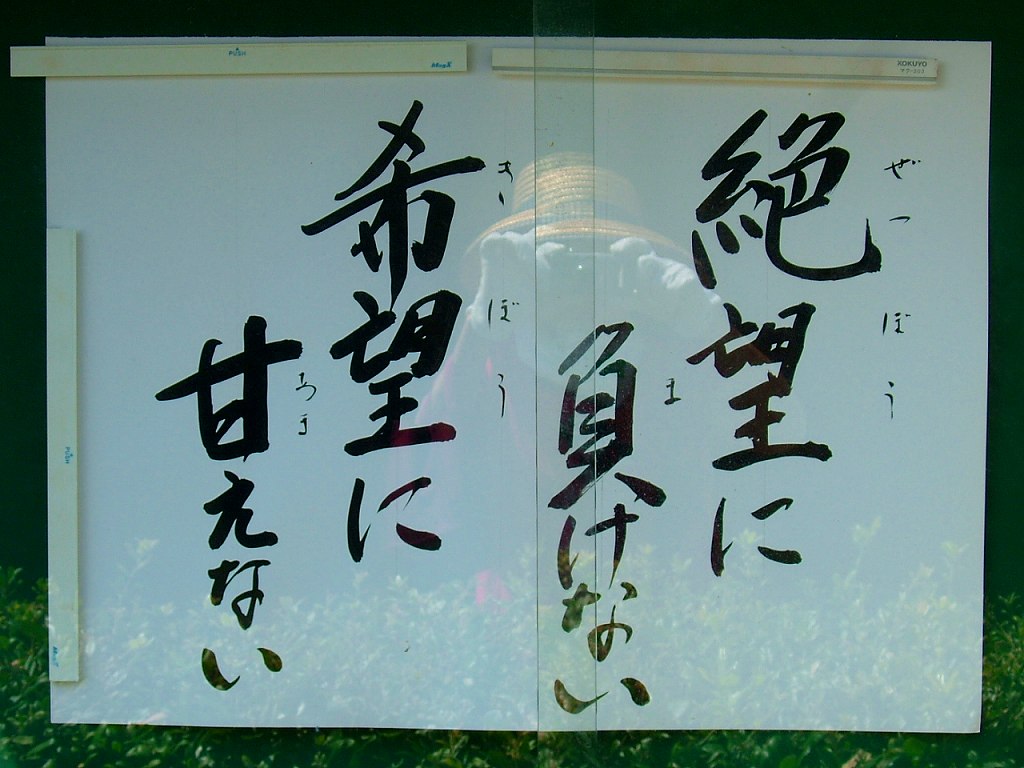 絶望に
ぜつぼう
負けない
ま
希望に
きぼう
甘えない
あま
PUSH
MagX
KOKUYO
PUSH
MagX